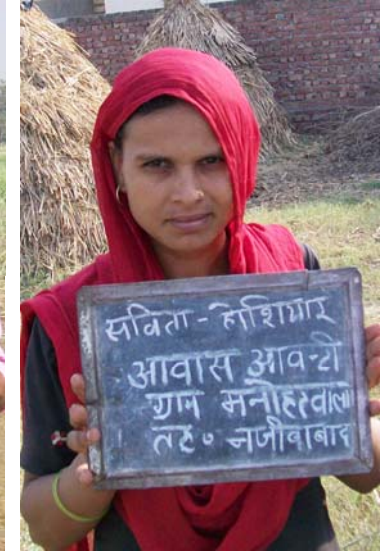 सविता - होशियार
आवास आवन्टी
ग्राम मनोहरवाला
तह० नजीबाबाद